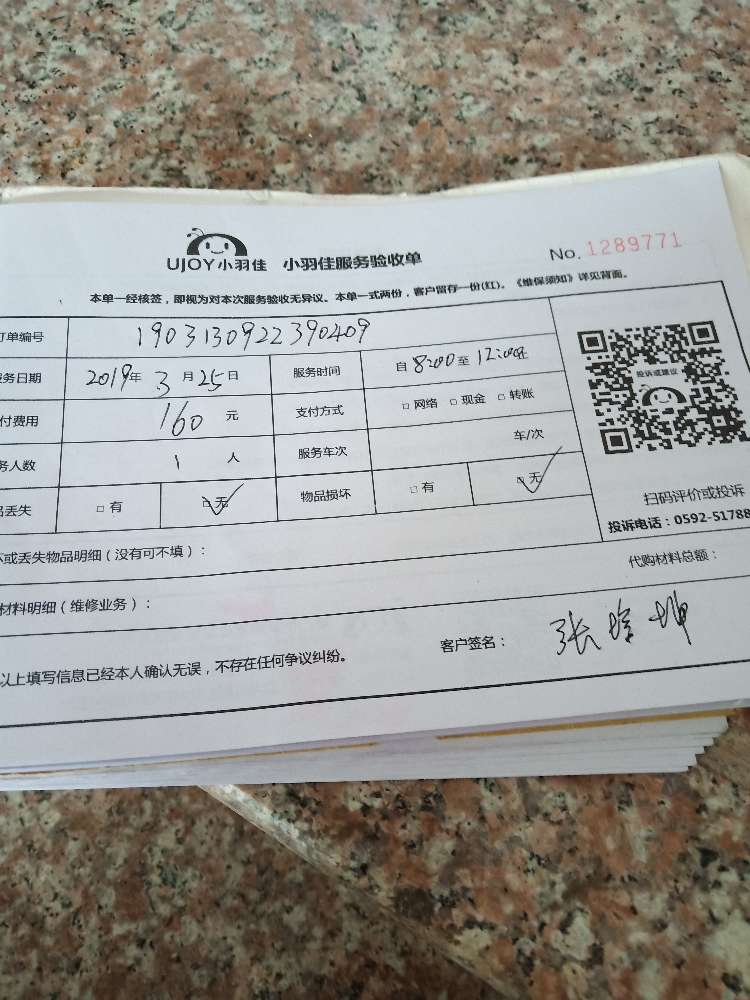 UJOY小羽佳 小羽佳服务验收单 No. 1289771
本单一经核签，即视为对本次服务验收无异议。本单一式两份，客户留存一份(红)。《维保须知》详见背面。
订单编号 1903130922390409
务日期 2019年 3月25日 服务时间 自 8:00至 12:00止
付费用 160 元 支付方式 □ 网络 □ 现金 □ 转账
务人数 1 人 服务车次 车/次
丢失 □ 有 □ 无 物品损坏 □ 有 □ 无
投诉或建议
扫码评价或投诉
投诉电话：0592-51788
或丢失物品明细（没有可不填）：
材料明细（维修业务）： 代购材料总额：
以上填写信息已经本人确认无误，不存在任何争议纠纷。 客户签名： 张 坤